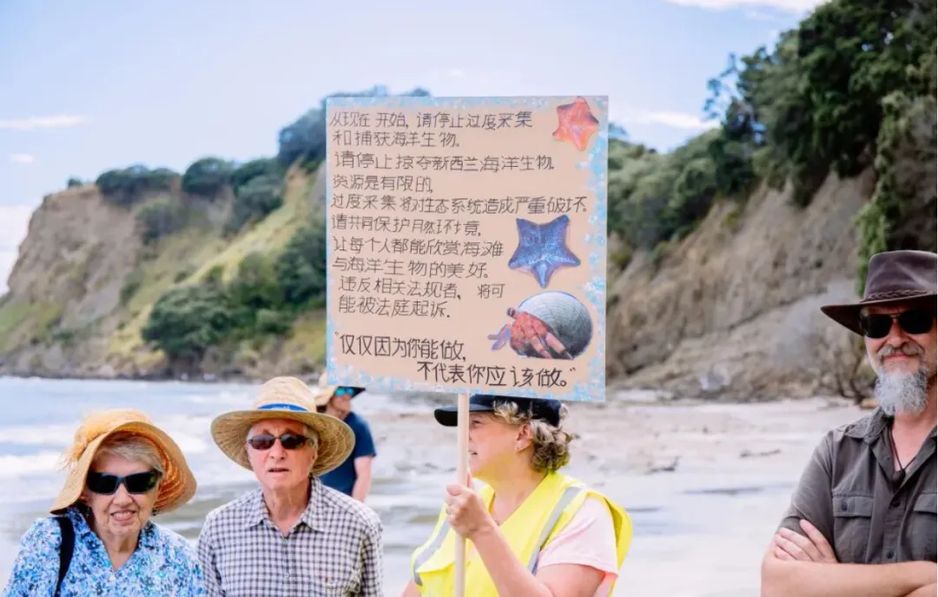 从现在 开始, 请停止过度采集
和捕获海洋生物.
请停止 掠夺新西兰海洋生物.
资源是有限的,
过度采集 将对生态系统造成严重破坏.
请共同保护自然环境,
让每个人都能欣赏海滩
与海洋生物的美好.
违反相关法规者, 将可
能被法庭起诉.
"仅仅因为你能做,
不代表你应该做。"